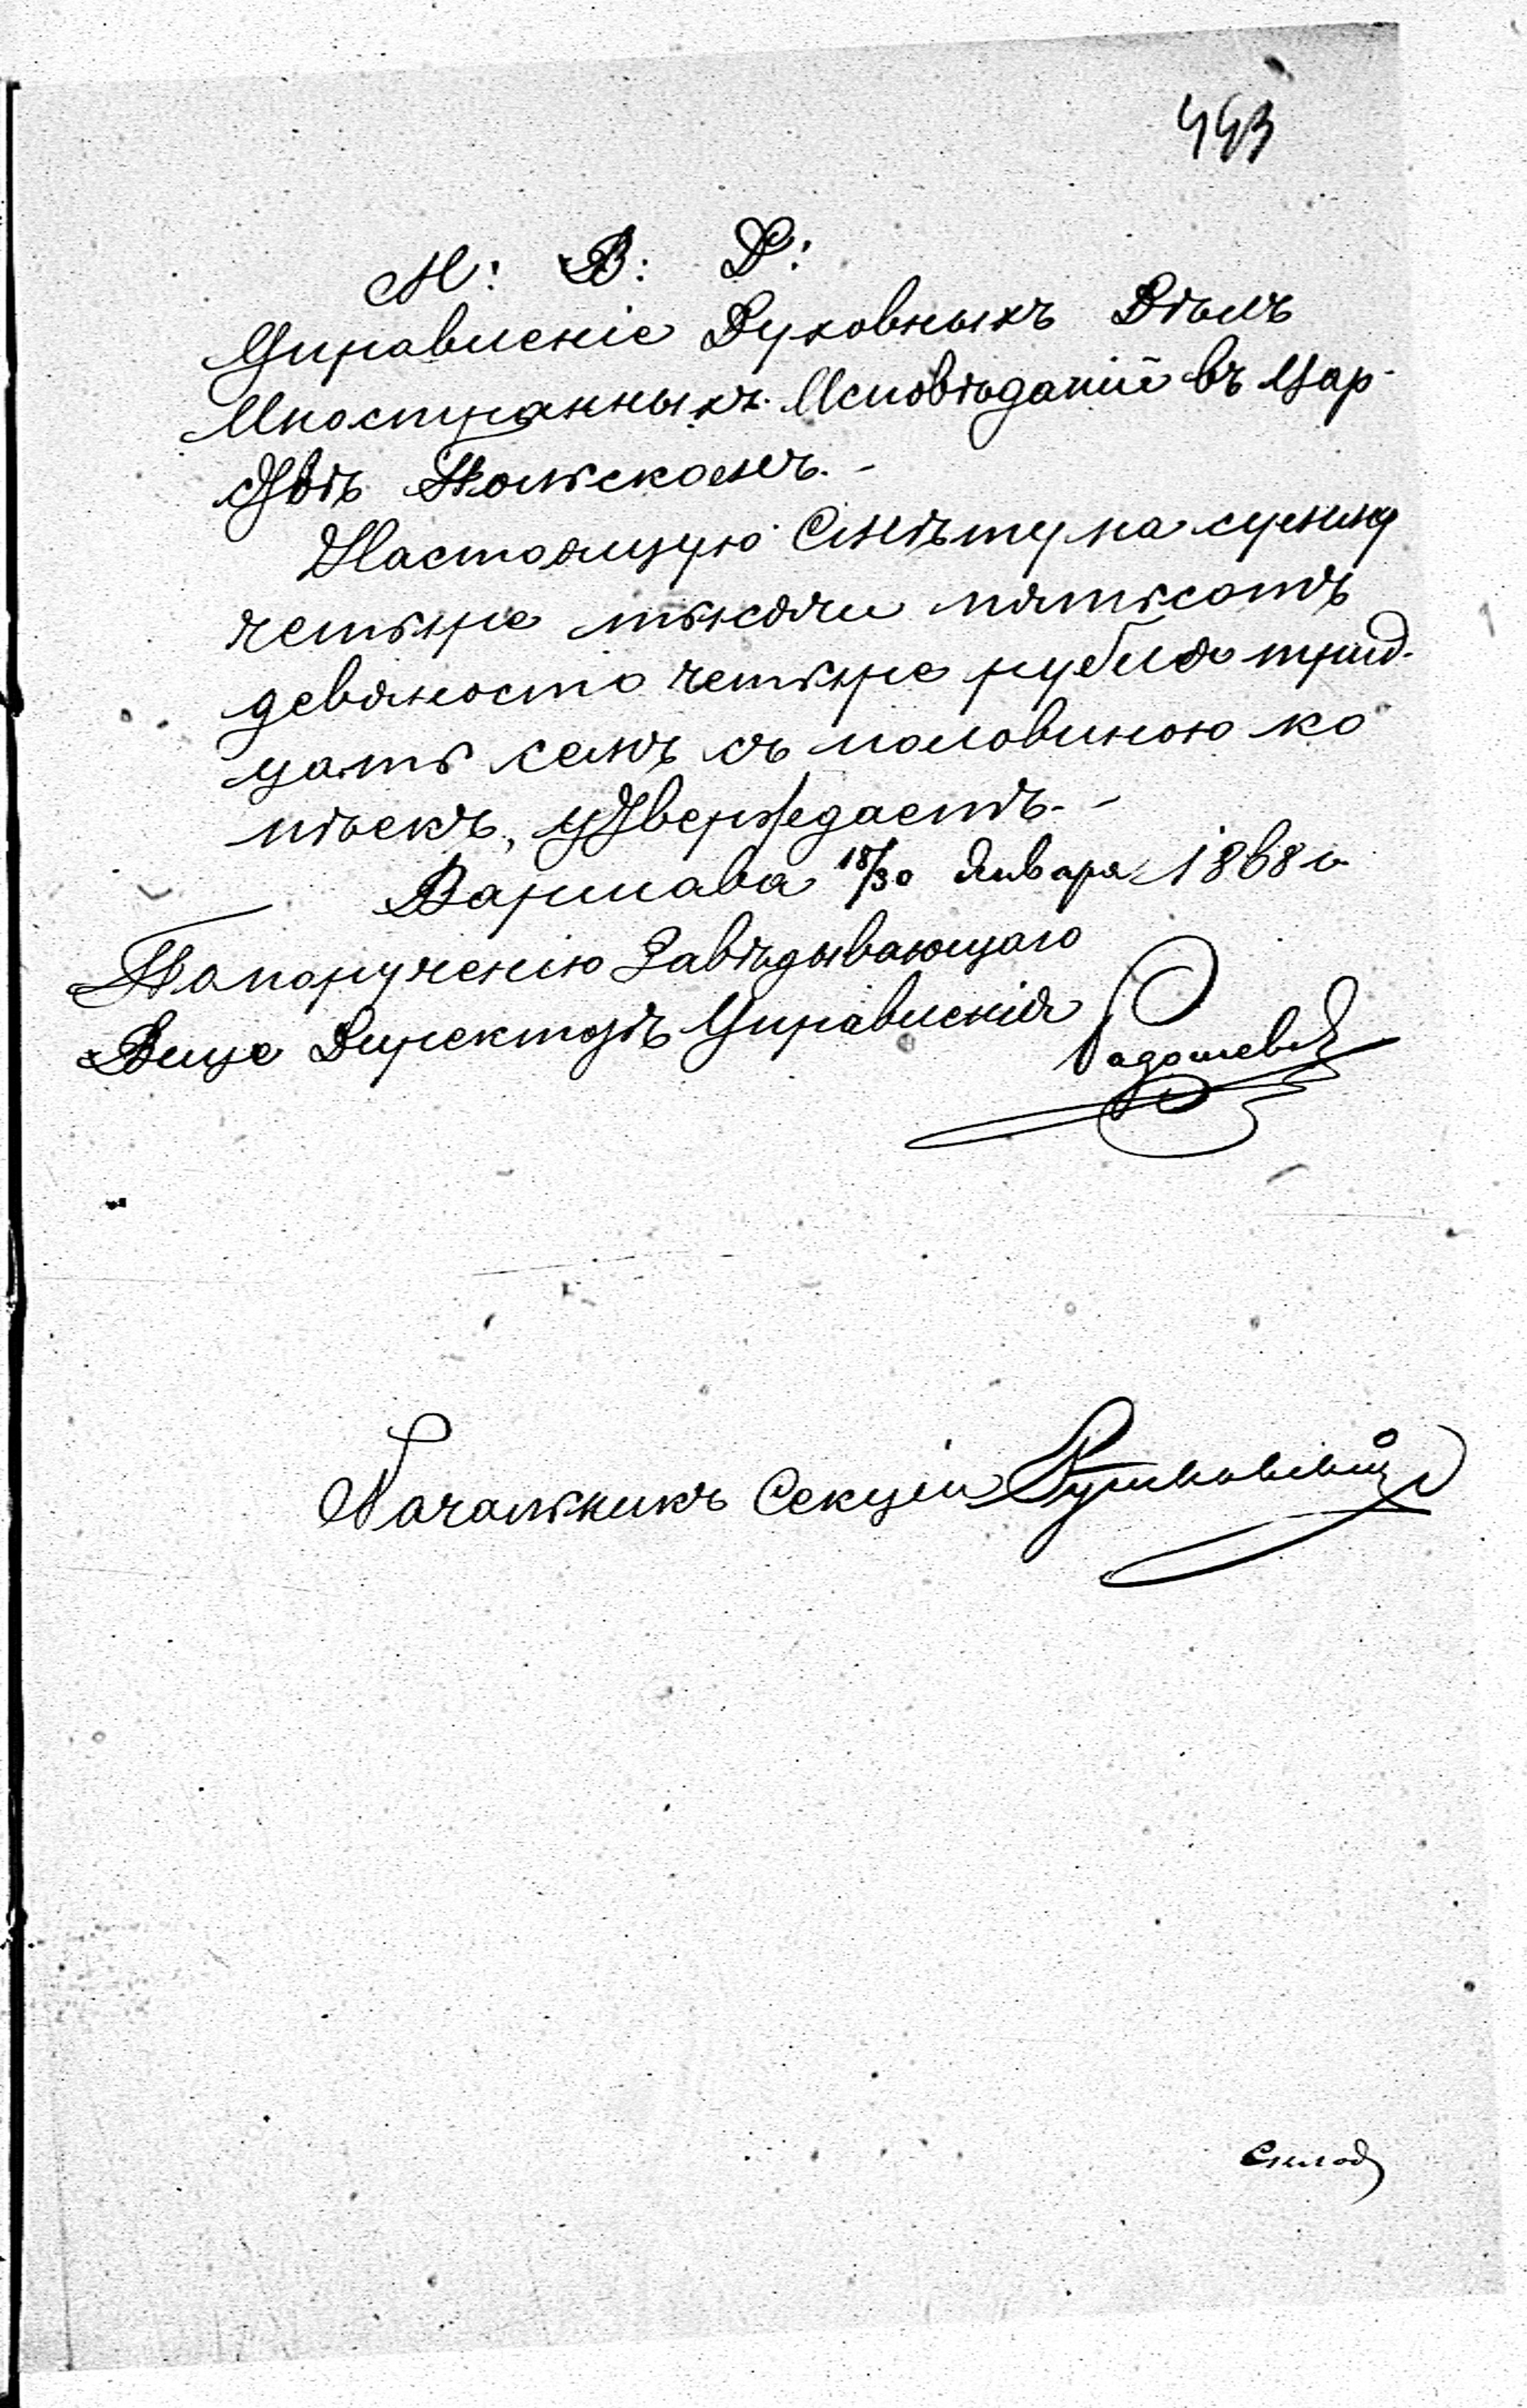 443
М: В: Д:
Управленіе Духовныхъ Дѣлъ
Иностранныхъ Исповѣданій въ Цар-
ствѣ Польскомъ. -
Настоящую Смѣту на сумму
четыре тысячи пятьсотъ
девяносто четыре рубля трид-
цать семь съ половиною ко
пѣекъ, утверждаетъ. -
Варшава 18/30 Января 1868 г.
По порученію Завѣдывающаго
Вице Директоръ Управленія
Начальникъ Секціи